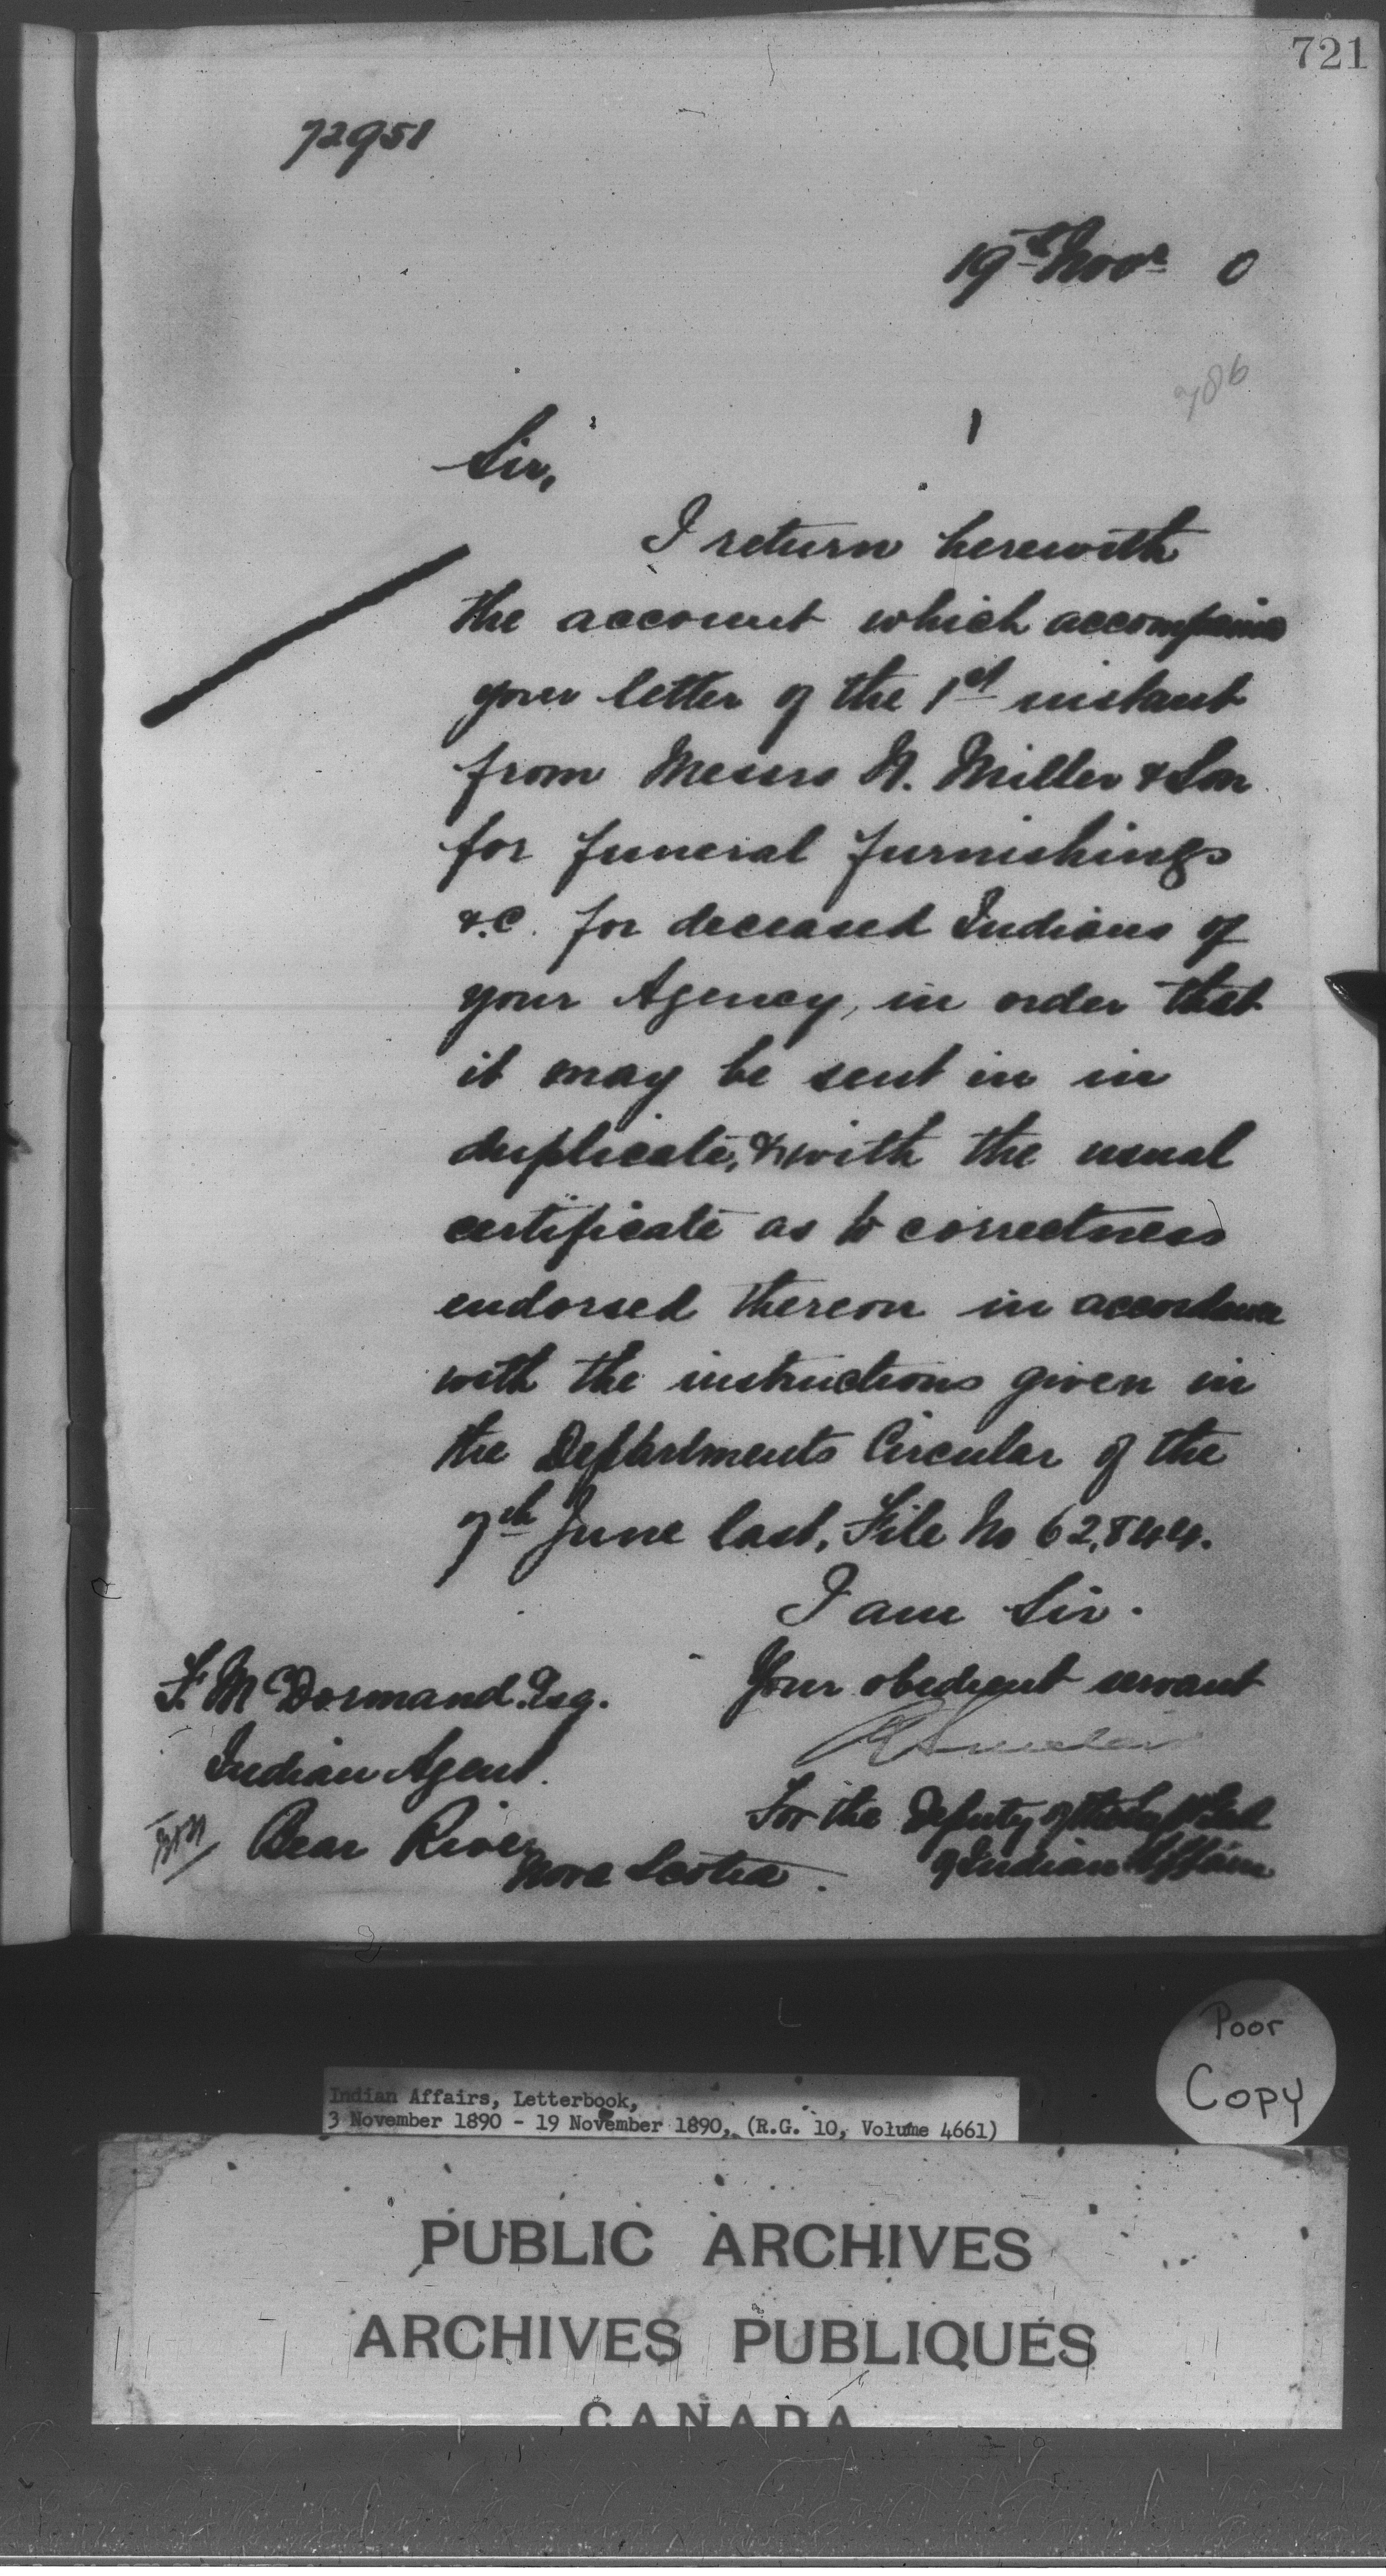 721
72951
19th Novr 0
786
Sir,
I return herewith
the account which accompanied
your letter of the 1st instant
from Messrs N. Miller & Son
for funeral furnishings
&c. for deceased Indians of
your Agency, in order that
it may be sent in in
duplicate, & with the usual
certificate as to correctness
endorsed thereon in accordance
with the instructions given in
the Departments Circular of the
7th June last, File No 62,844.
I am Sir.
Your obedient servant
For the Deputy of the Supt Genl
of Indian Affairs
F. McDormand Esq.
Indian Agent.
Bear River
Nova Scotia.
Poor
Copy
Indian Affairs, Letterbook,
3 November 1890 - 19 November 1890, (R.G. 10, Volume 4661)
PUBLIC ARCHIVES
ARCHIVES PUBLIQUES
CANADA